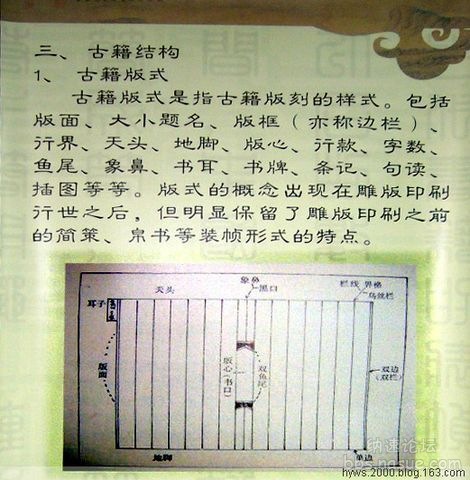 三、古籍结构
1、 古籍版式
古籍版式是指古籍版刻的样式。包括
版面、大小题名、版框（亦称边栏）、
行界、天头、地脚、版心、行款、字数、
鱼尾、象鼻、书耳、书牌、条记、句读、
插图等等。版式的概念出现在雕版印刷
行世之后，但明显保留了雕版印刷之前
的简策、帛书等装帧形式的特点。
象鼻
天头
黑口
栏线 界格
乌丝栏
耳子
版面
版心(书口)
双鱼尾
双边
(双栏)
地脚
单边
纳速论坛
hyws.2000.blog.163.com